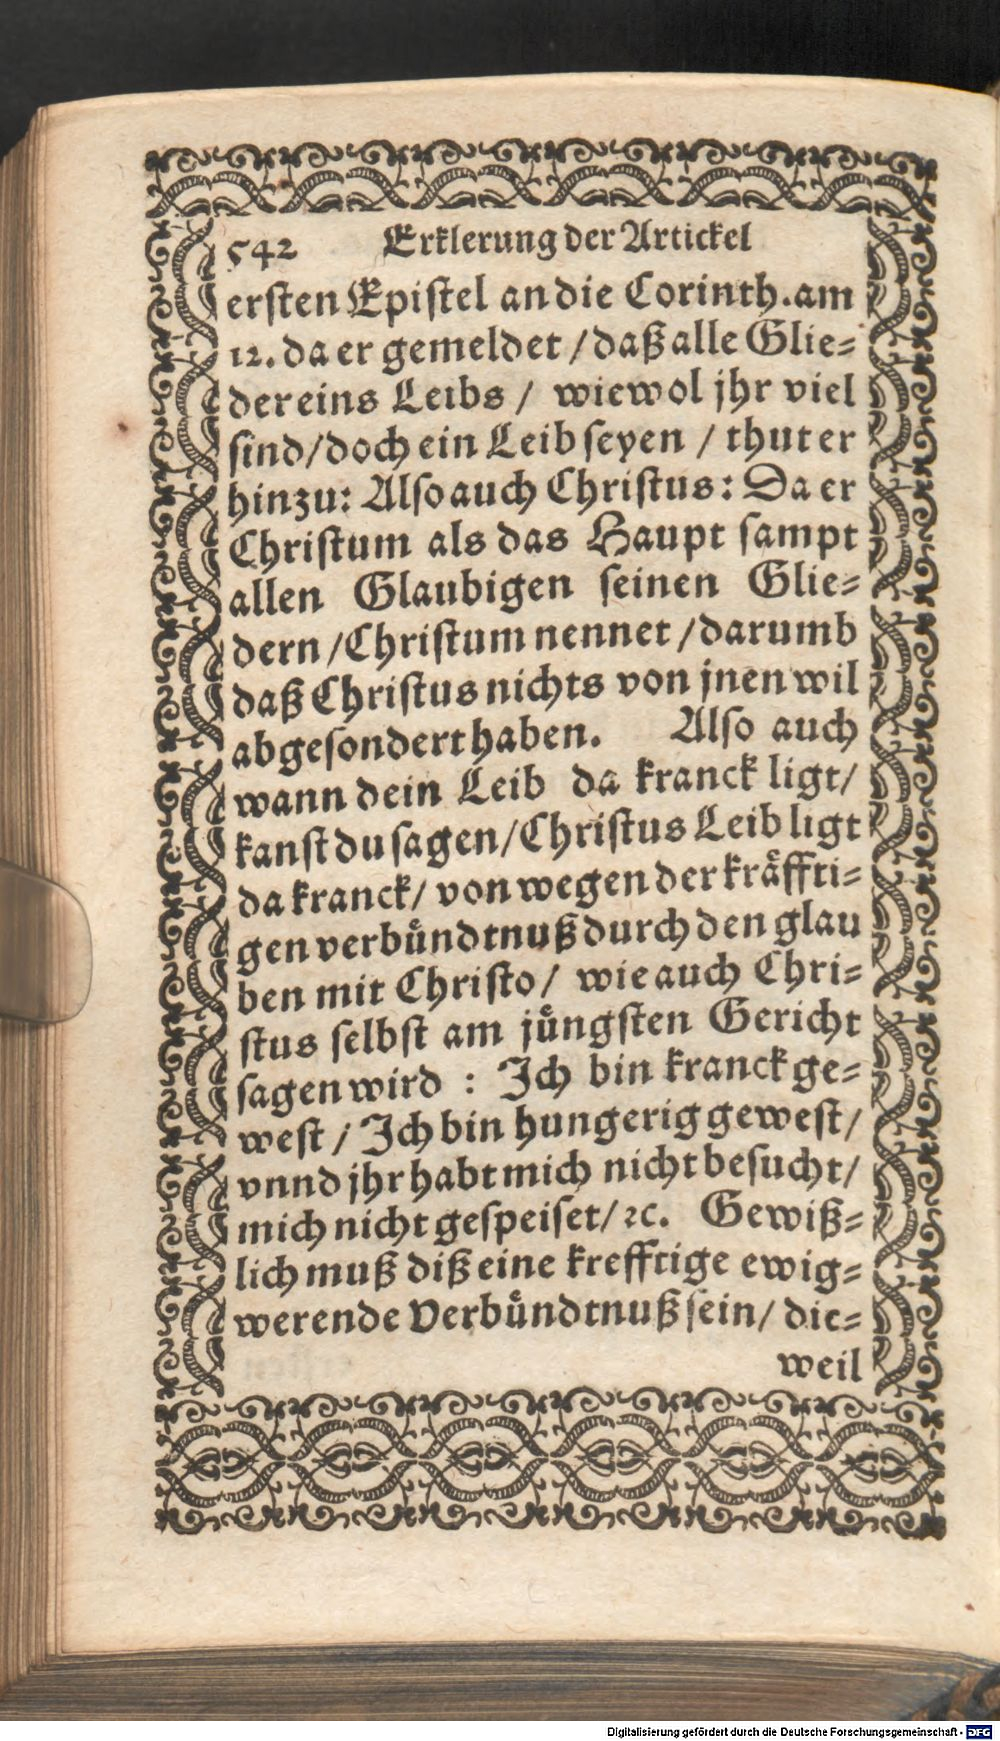 542 Erklerung der Artickel
ersten Epistel an die Corinth. am
12. da er gemeldet / daß alle Glie-
der eins Leibs / wiewol jhr viel
sind / doch ein Leib seyen / thut er
hinzu: Also auch Christus: Da er
Christum als das Haupt sampt
allen Glaubigen seinen Glie-
dern / Christum nennet / darumb
daß Christus nichts von jnen wil
abgesondert haben. Also auch
wann dein Leib da kranck ligt /
kanst du sagen / Christus Leib ligt
da kranck / von wegen der kräffti-
gen verbündtnuß durch den glau
ben mit Christo / wie auch Chri-
stus selbst am jüngsten Gericht
sagen wird : Ich bin kranck ge-
west / Ich bin hungerig gewest /
vnnd jhr habt mich nicht besucht /
mich nicht gespeiset / ꝛc. Gewiß-
lich muß diß eine krefftige ewig-
werende Verbündtnuß sein / die-
weil
Digitalisierung gefördert durch die Deutsche Forschungsgemeinschaft - DFG